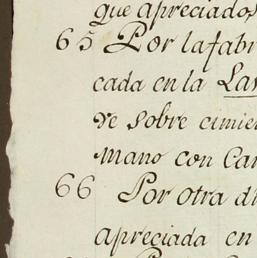 que apreciados
65 Por la fabr
cada en la Lar
re sobre cimie
mano con Car
66 Por otra di
apreciada en